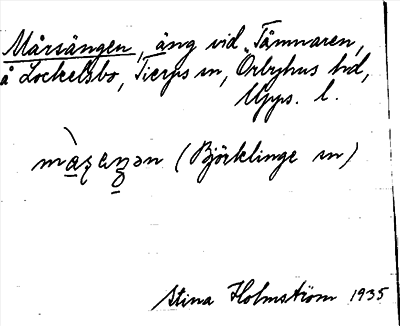 Mårsängen, äng vid Tämnaren,
å Lockelsbo, Tierps sn, Örbyhus hd,
Upps. l.
(Björklinge sn)
Stina Holmström 1935